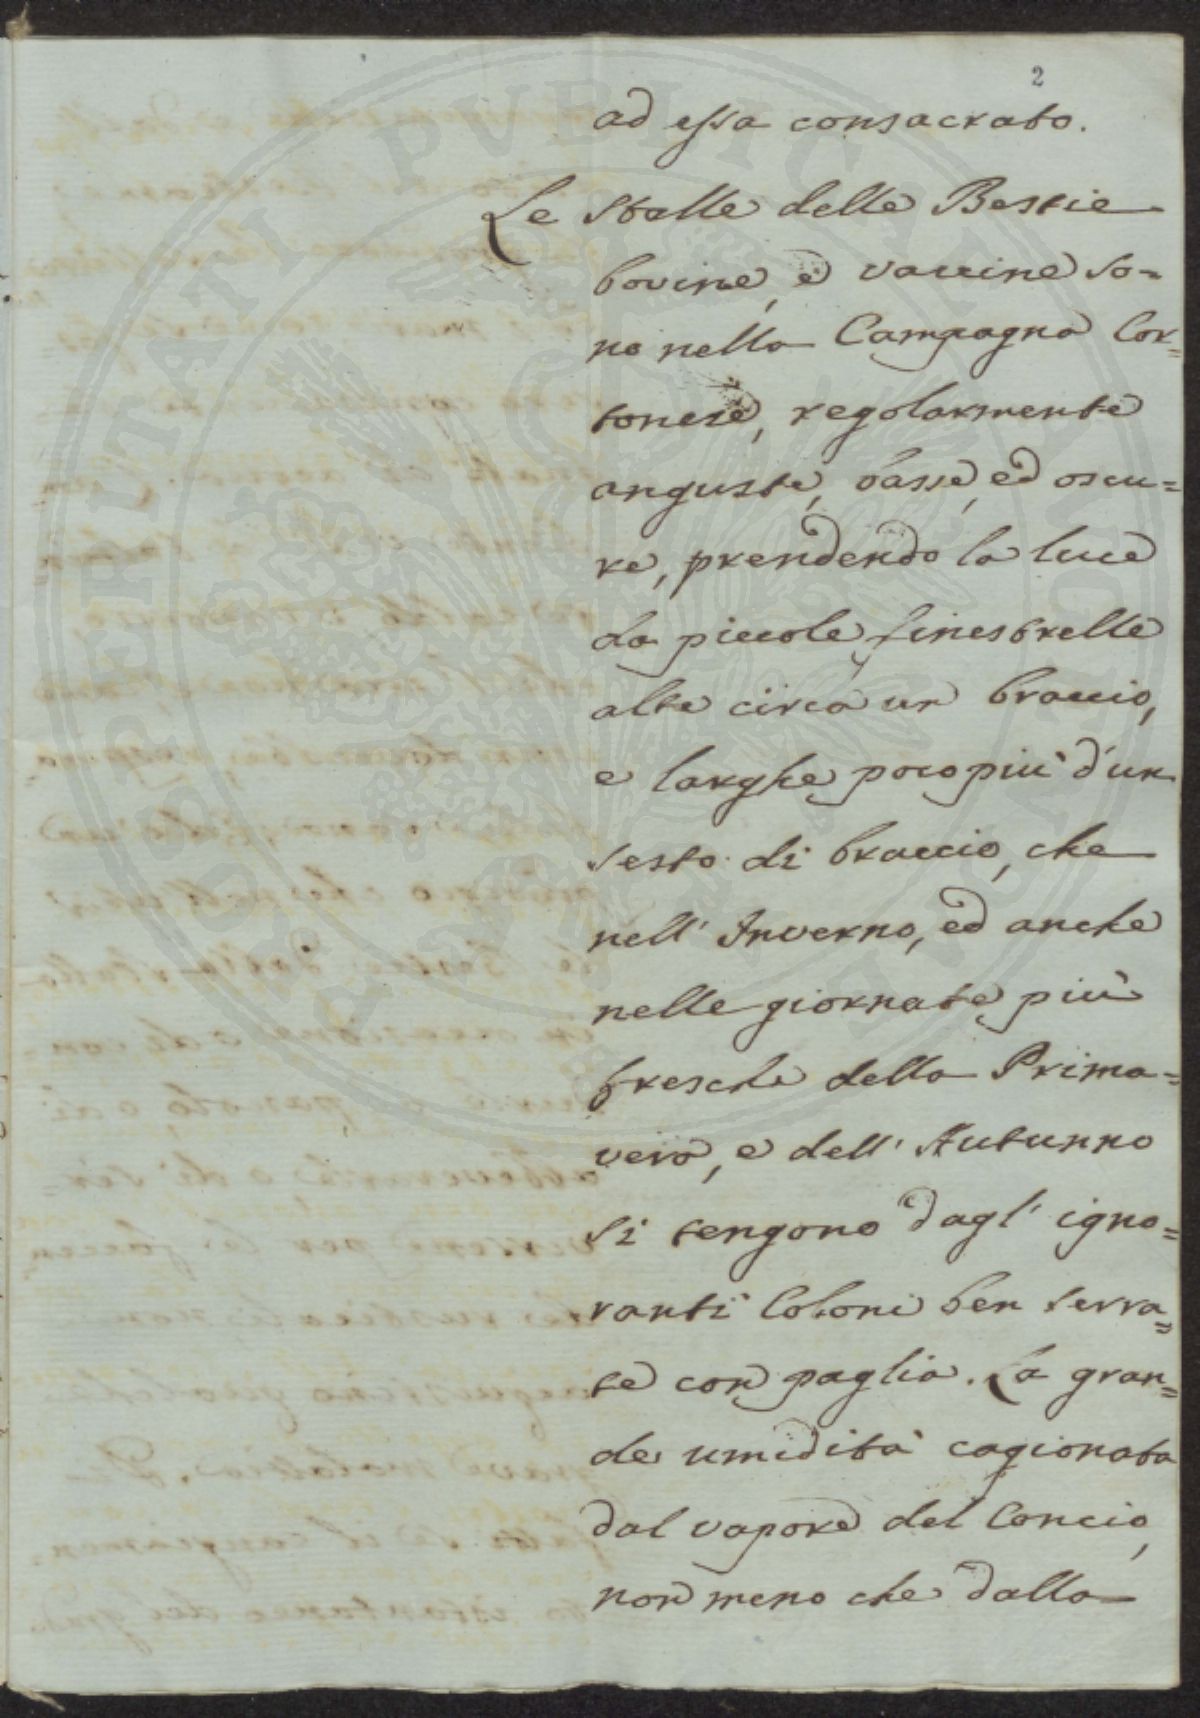 2
ad essa consacrato.
Le Stalle delle Bestie
bovine, e vaccine so=
no nella Campagna Cor=
tonese, regolarmente
anguste, basse, ed oscu=
re, prendendo la luce
da piccole finestrelle
alte circa un braccio,
e larghe poco più d'un
sesto di braccio, che
nell' Inverno, ed anche
nelle giornate più
fresche della Prima=
vera, e dell' Autunno
si tengono dagl' igno=
ranti Coloni ben serra=
te con paglia. La gran=
de umidità cagionata
dal vapore del Concio,
non meno che dalla